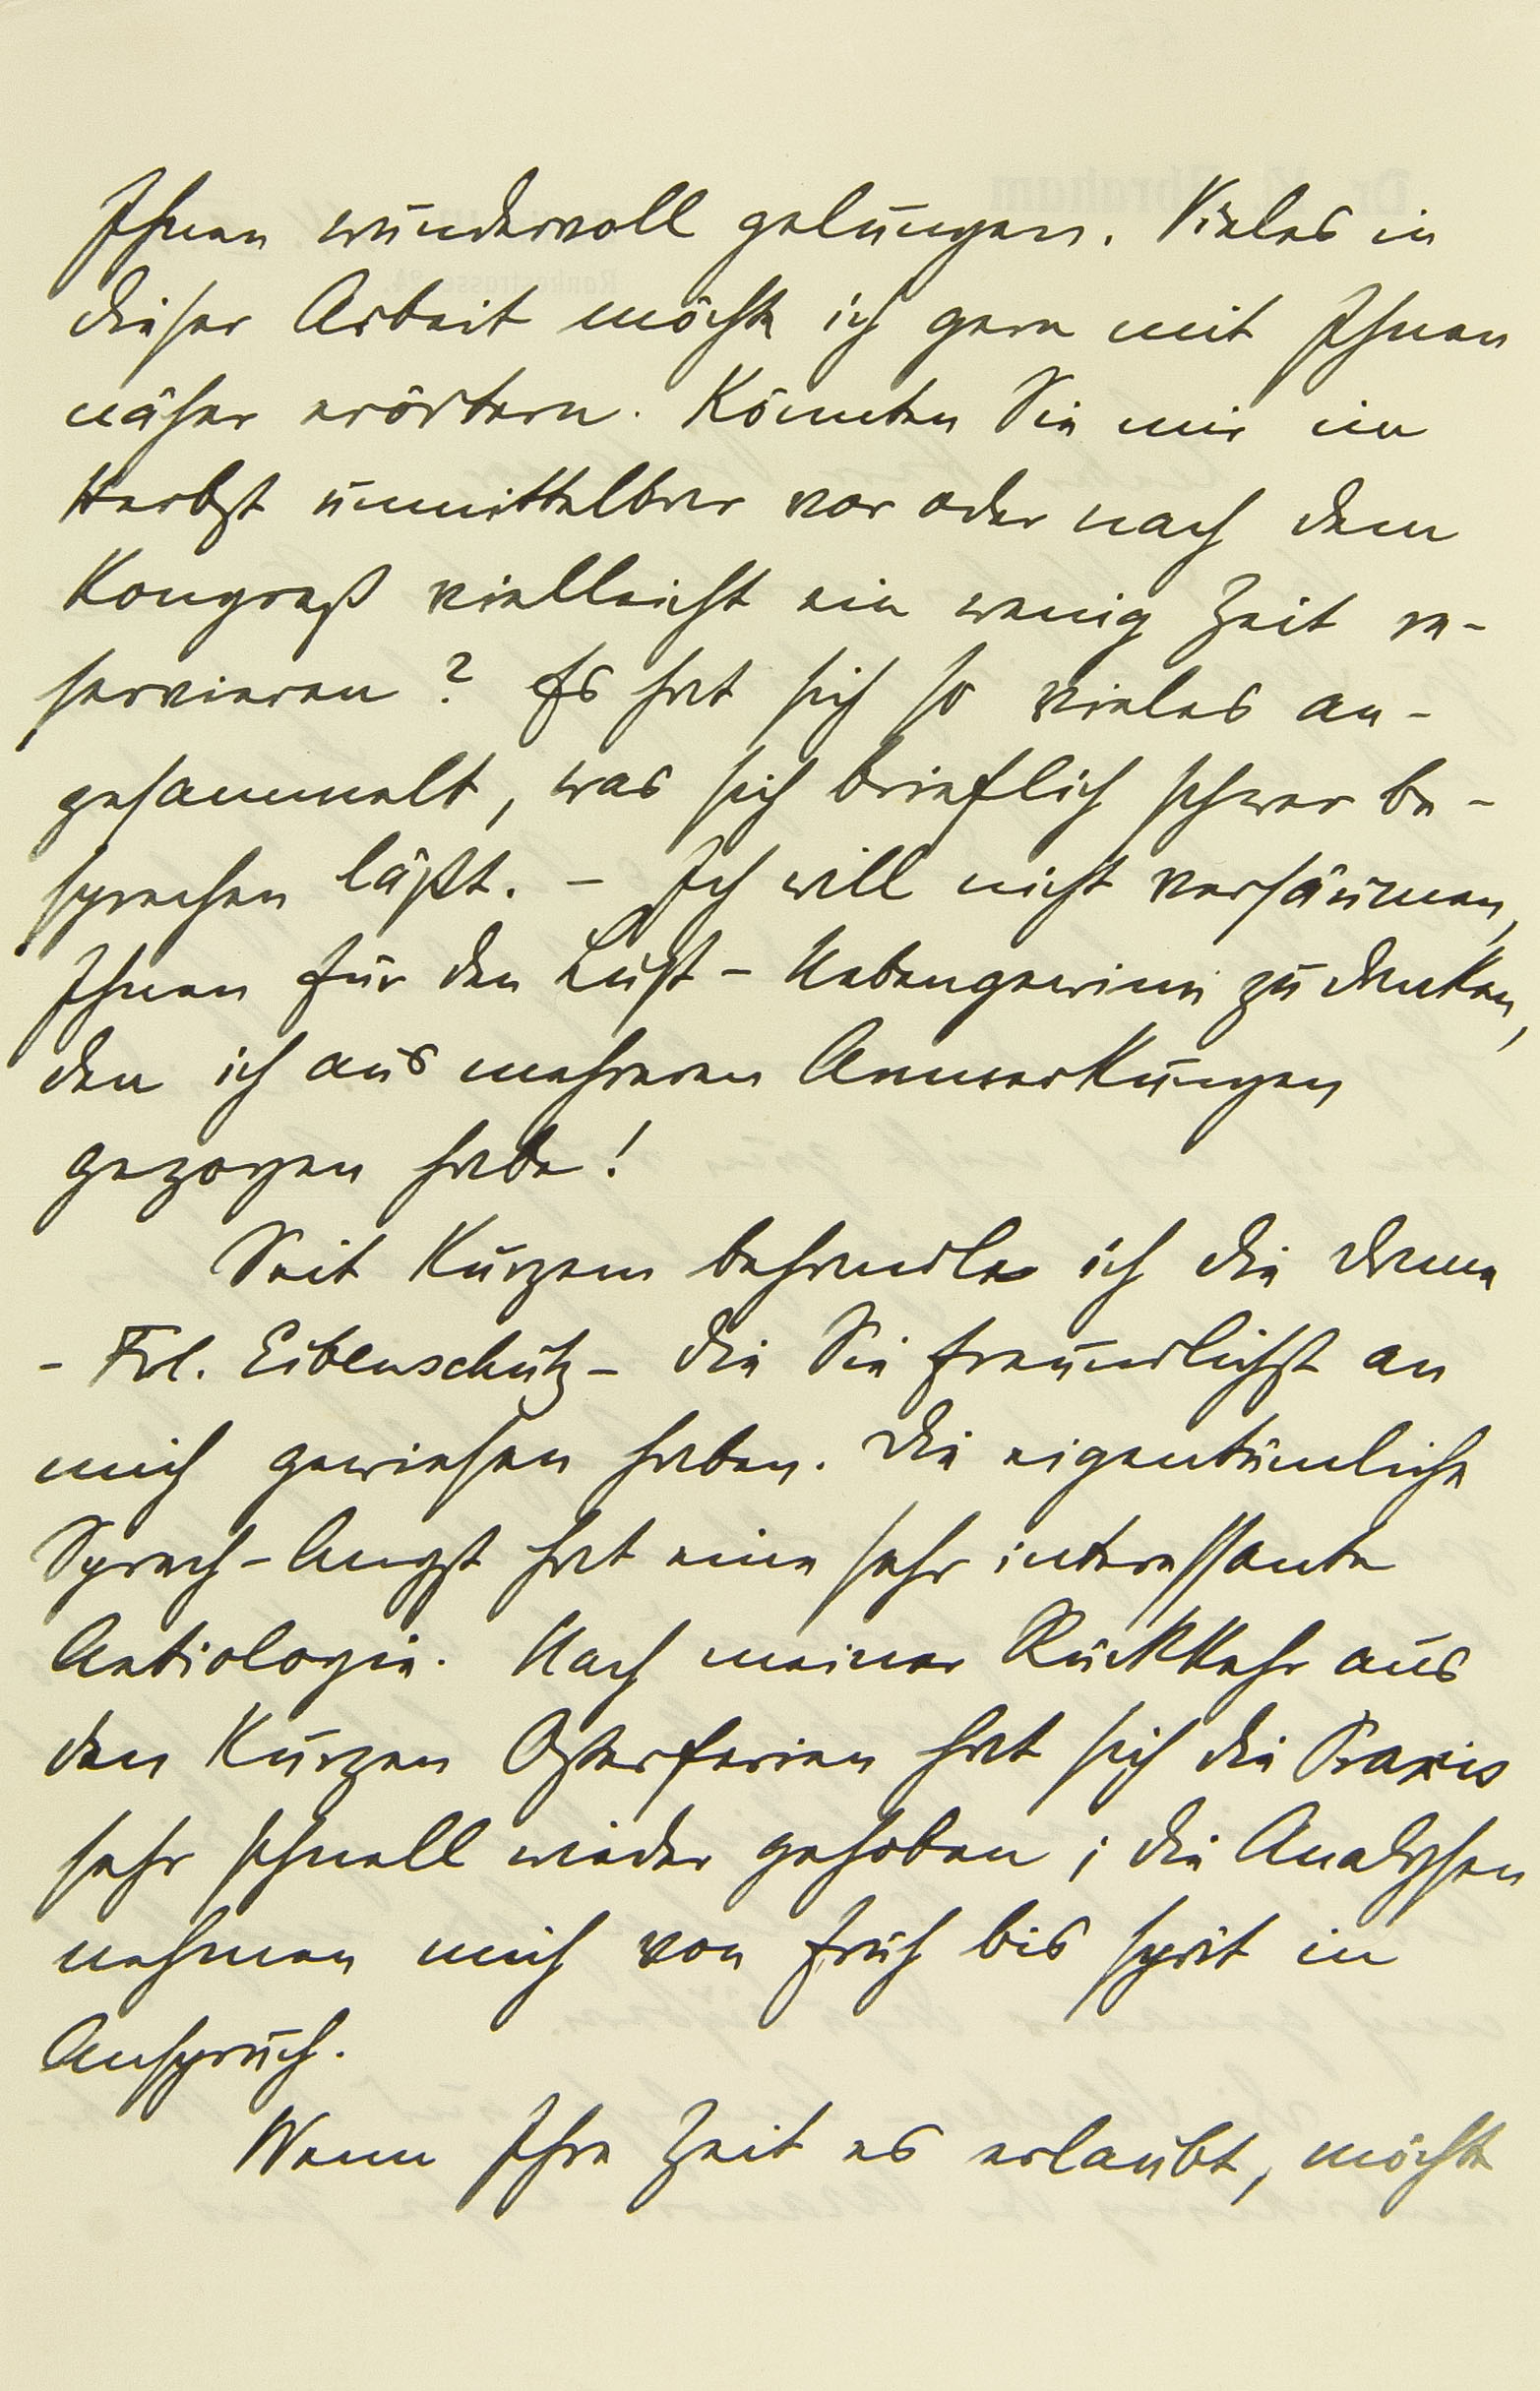 Ihnen wundervoll gelungen. Vieles in
dieser Arbeit möchte ich gern mit Ihnen
näher erörtern. Könnten Sie mir im
Herbst unmittelbar vor oder nach dem
Kongreß vielleicht ein wenig Zeit re-
servieren? Es hat sich so vieles an-
gesammelt, was sich brieflich schwer be-
sprechen läßt. – Ich will nicht versäumen,
Ihnen für den Lust-Nebengewinn zu danken,
den ich aus mehreren Anmerkungen
gezogen habe!
Seit Kurzem behandle ich die Dame
– Frl. Eibenschütz – die Sie freundlichst an
mich gewiesen haben. Die eigentümliche
Sprech-Angst hat eine sehr interessante
Aetiologie. Nach meiner Rückkehr aus
den kurzen Osterferien hat sich die Praxis
sehr schnell wieder gehoben; die Analysen
nehmen mich von früh bis spät in
Anspruch.
Wenn Ihre Zeit es erlaubt, möchte